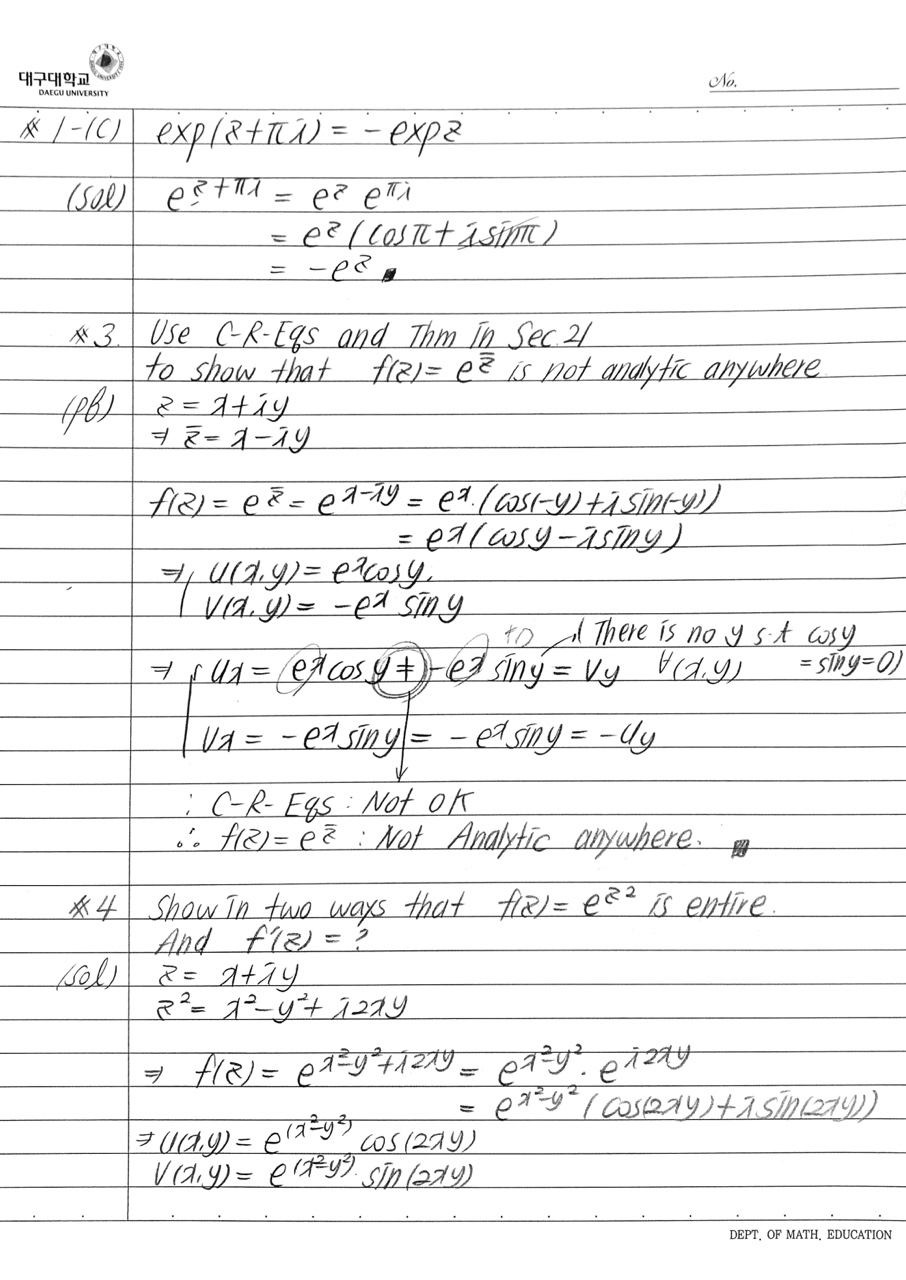 대구대학교
DAEGU UNIVERSITY
No.
※ 1-(c) exp(z+πi) = -exp z
(sol) e^{z+πi} = e^z e^{πi}
= e^z (cosπ + i sinπ)
= -e^z ■
※3. Use C-R-Eqs and Thm in Sec.21
to show that f(z) = e^{z̄} is not analytic anywhere.
(pf) z = x+iy
⇒ z̄ = x-iy
f(z) = e^{z̄} = e^{x-iy} = e^x·(cos(-y)+i sin(-y))
= e^x(cosy - i siny)
⇒ u(x,y) = e^x cosy,
v(x,y) = -e^x siny
There is no y s.t cosy
⇒ ux = e^x cosy ≠ -e^x siny = vy ∀(x,y) = siny = 0)
vx = -e^x siny = -e^x siny = -uy
: C-R-Eqs : Not OK
∴ f(z) = e^{z̄} : Not Analytic anywhere. ■
※4 Show in two ways that f(z) = e^{z²} is entire.
And f'(z) = ?
(sol) z = x+iy
z² = x²-y²+i2xy
⇒ f(z) = e^{x²-y²+i2xy} = e^{x²-y²}·e^{i2xy}
= e^{x²-y²}(cos(2xy)+i sin(2xy))
⇒ u(x,y) = e^{(x²-y²)} cos(2xy)
v(x,y) = e^{(x²-y²)} sin(2xy)
DEPT. OF MATH. EDUCATION